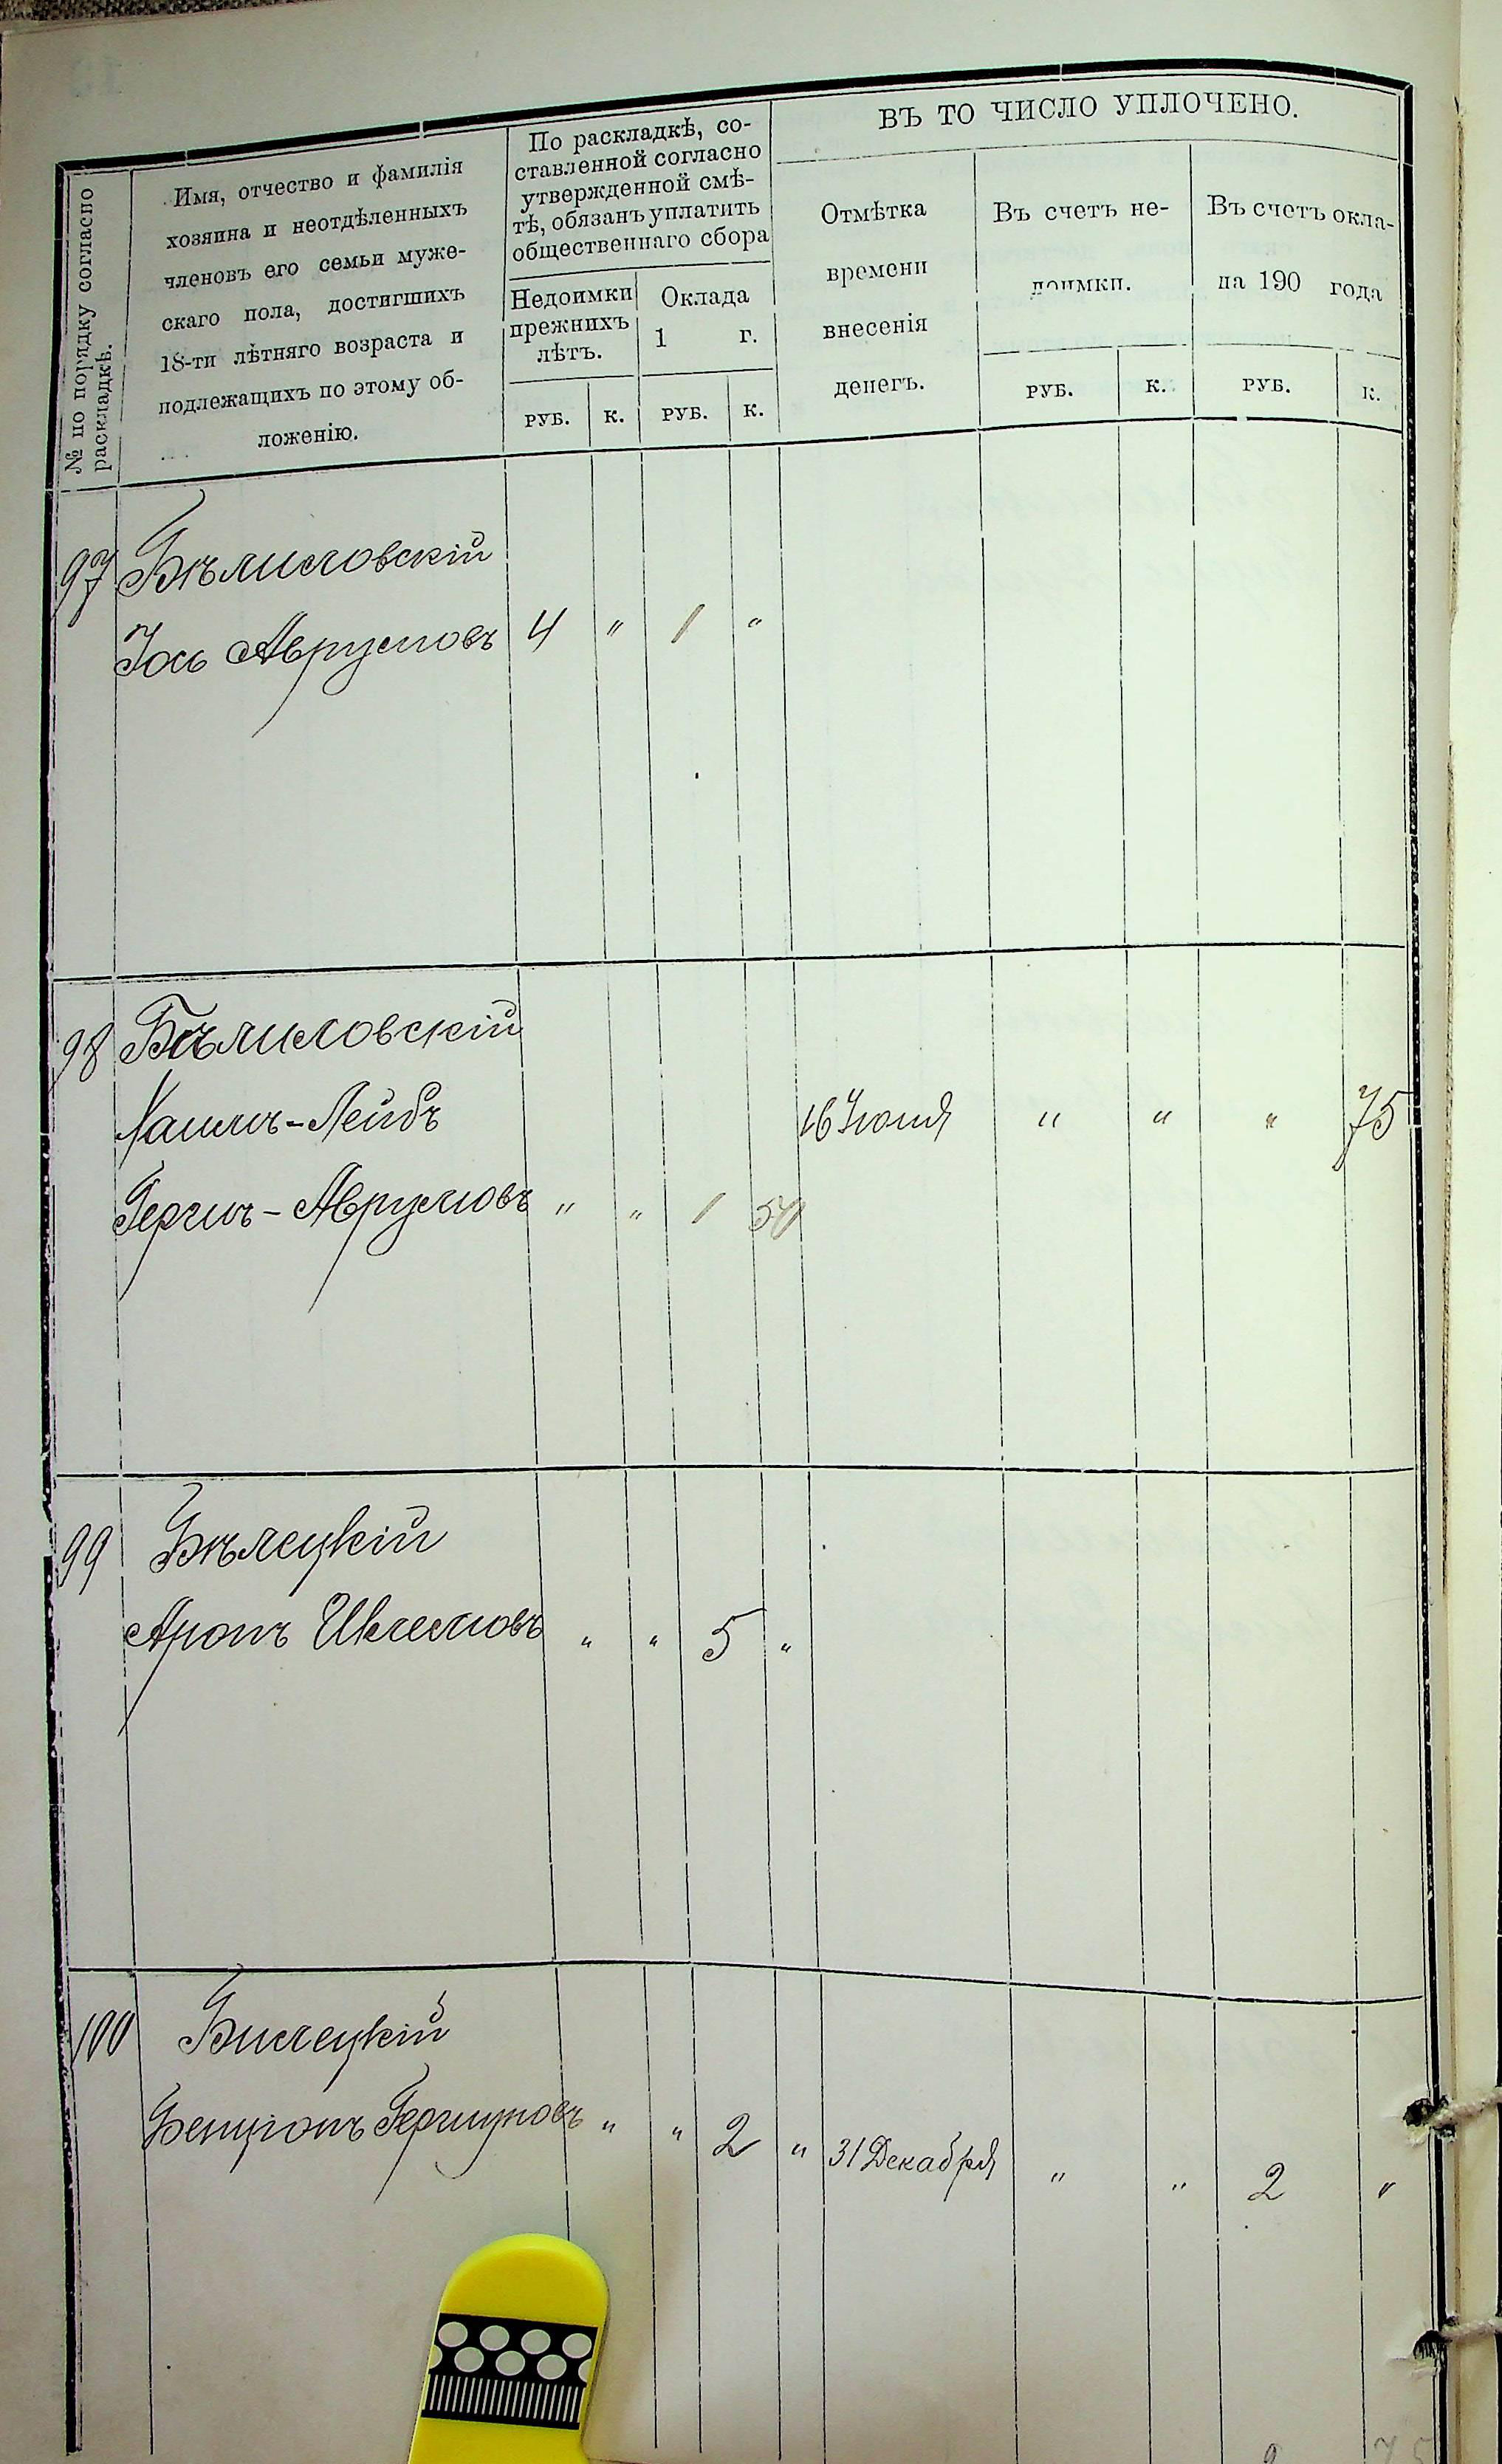 ВЪ ТО ЧИСЛО УПЛОЧЕНО.
№ по порядку согласно
раскладкѣ.
Имя, отчество и фамилія
хозяина и неотдѣленныхъ
членовъ его семьи муже-
скаго пола, достигшихъ
18-ти лѣтняго возраста и
подлежащихъ по этому об-
ложенію.
По раскладкѣ, со-
ставленной согласно
утвержденной смѣ-
тѣ, обязанъ уплатить
общественнаго сбора
Недоимки
прежнихъ
лѣтъ.
Оклада
1 г.
Отмѣтка
времени
внесенія
денегъ.
Въ счетъ не-
доимки.
Въ счетъ окла-
на 190 года
РУБ. К. РУБ. К. РУБ. К. РУБ. К.
97 Бѣлиловскій
Іось Аврумовъ 4 " 1 "
98 Бѣлиловскій
-Лейбъ 16 Іюня " " " 75
Гершъ-Аврумовъ " " 1 50
99 Бѣлецкій
Аронъ " " 5 "
100 Билецкій
Бенціонъ " " 2 " 31 Декабря " " 2 "
2 75